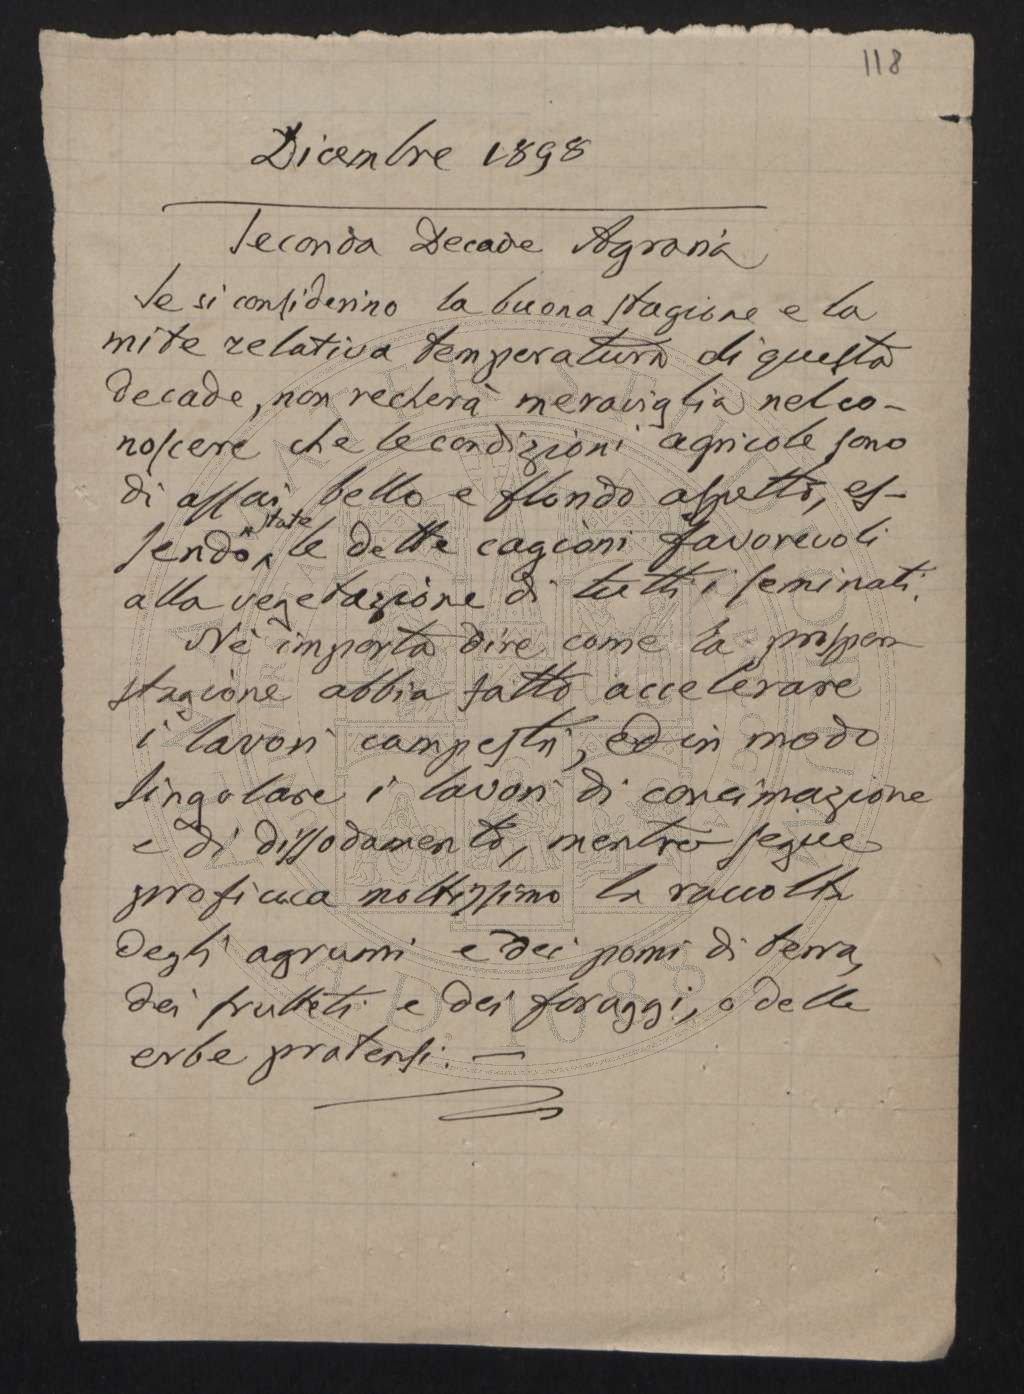 118
Dicembre 1898
Seconda Decade Agraria
Se si considerino la buona stagione e la
mite relativa temperatura di questa
decade, non recherà meraviglia nel co-
noscere che le condizioni agricole sono
di assai bello e florido aspetto, es-
sendo state le dette cagioni favorevoli
alla vegetazione di tutti i seminati.
Nè importa dire come la prospera
stagione abbia fatto accelerare
i lavori campestri, ed in modo
singolare i lavori di concimazione
e di dissodamento, mentre segue
proficua moltissimo la raccolta
degli agrumi e dei pomi di terra,
dei frutteti e dei foraggi, o delle
erbe pratensi. —